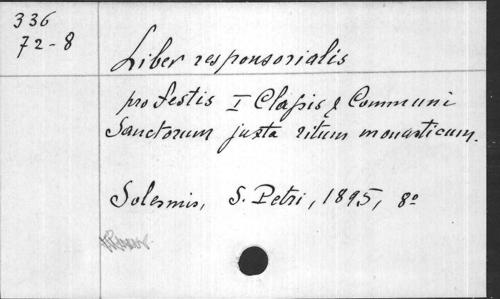 336
72-8
Liber responsorialis
pro festis I Classis & Communi
Sanctorum juxta ritum monasticum.
Solesmis, S. Petri, 1895, 8º